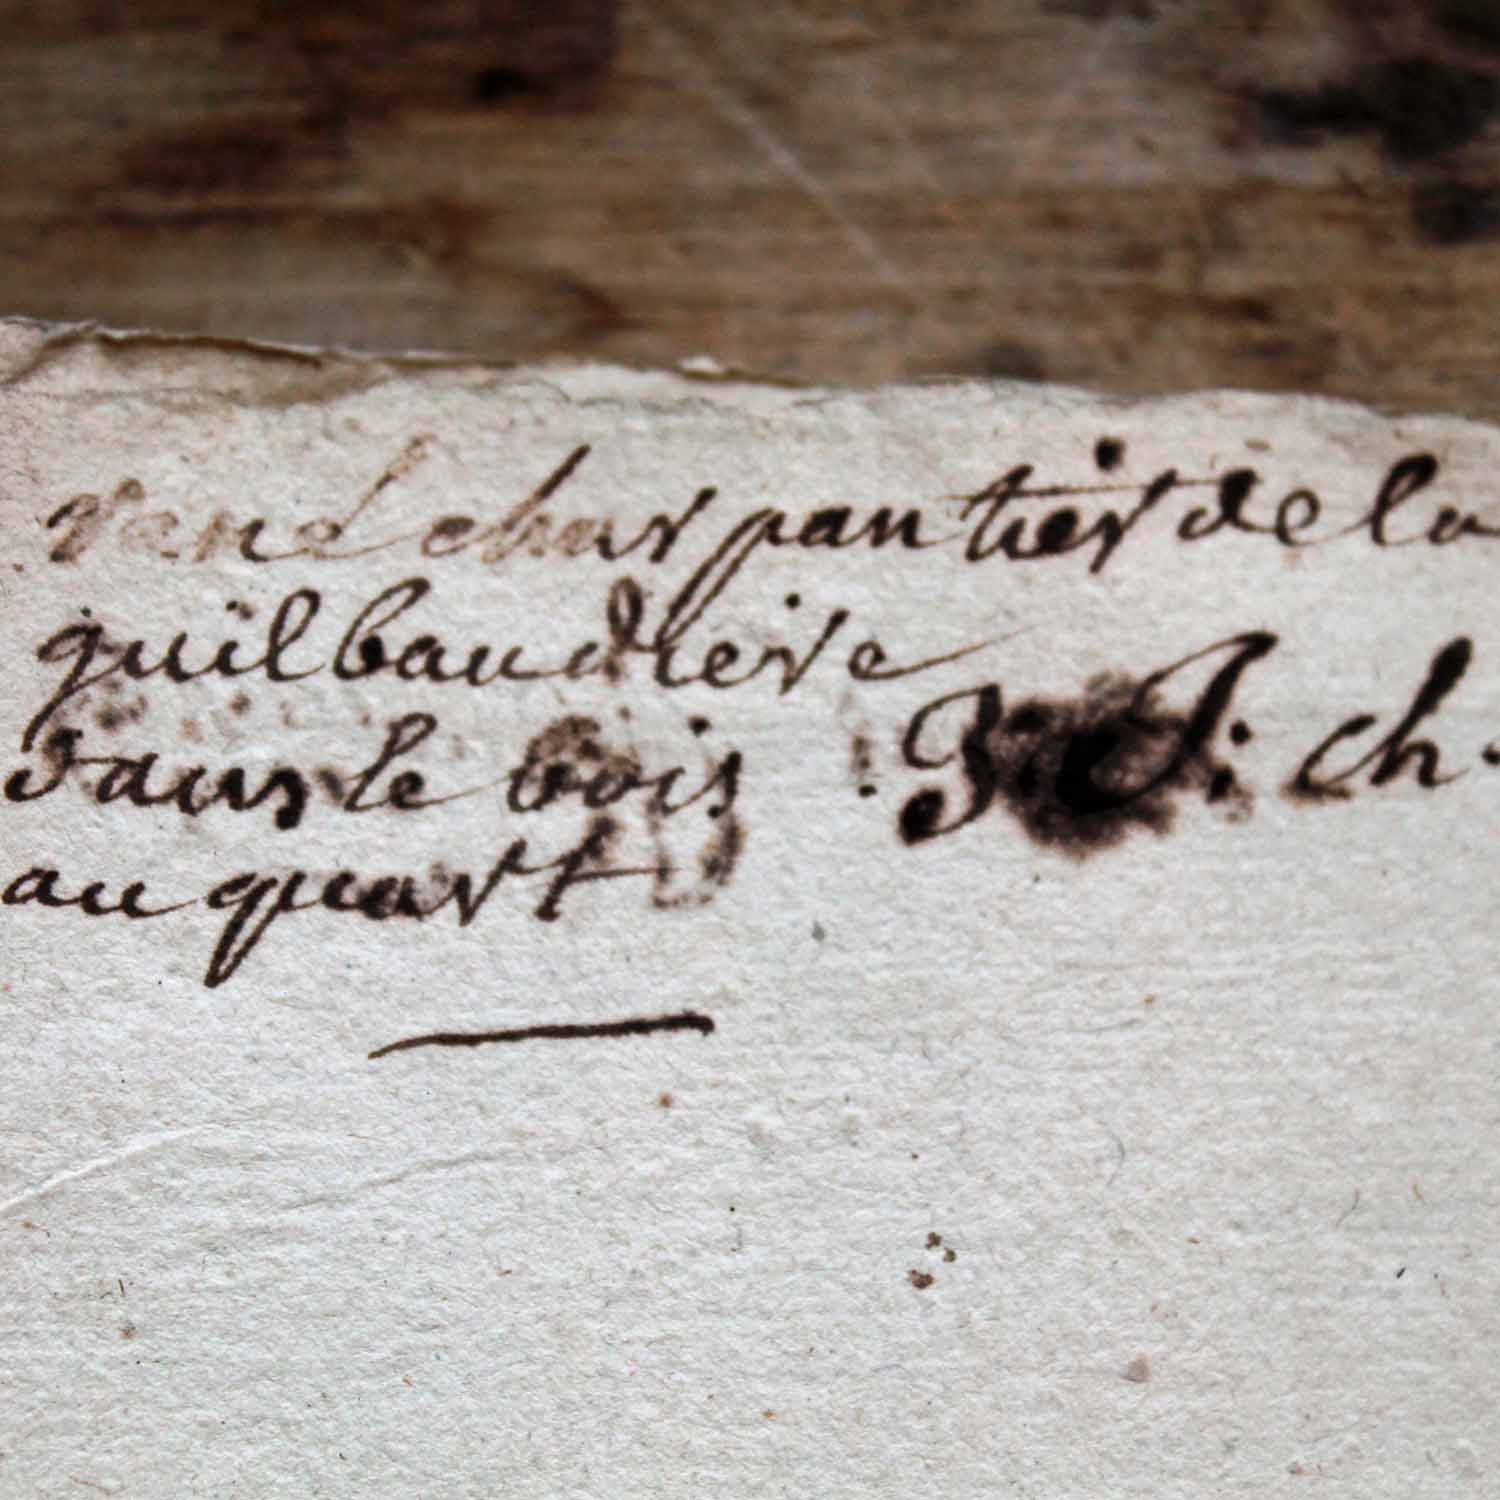 rend charpantier de la
guilbaudiere
dans le bois 3. J. ch.
au quart